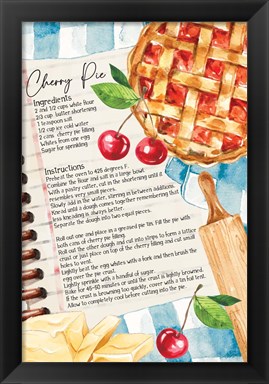 Cherry Pie
Ingredients
2 and 1/2 cups white flour
2/3 cup butter shortening
1 teaspoon salt
1/2 cup ice cold water
2 cans cherry pie filling
Whites from one egg
Sugar for sprinkling
Instructions
Preheat the oven to 425 degrees F.
Combine the flour and salt in a large bowl.
With a pastry cutter, cut in the shortening until it
resembles very small pieces.
Slowly add in the water, stirring in between additions.
Knead until a dough comes together remembering that
less kneading is always better.
Separate the dough into two equal pieces.
Roll out one piece and place in a greased pie tin. Fill the pie with
both cans of cherry pie filling.
Roll out the other dough and cut into strips, to form a lattice
crust or just place on top of the cherry filling and cut small
holes to vent.
Lightly beat the egg whites with a fork and then brush the
egg over the pie crust.
Lightly sprinkle with a handful of sugar.
Bake for 45-50 minutes or until the crust is lightly browned.
If the crust is browning too quickly, cover with a tin foil tent.
Allow to completely cool before cutting into the pie.